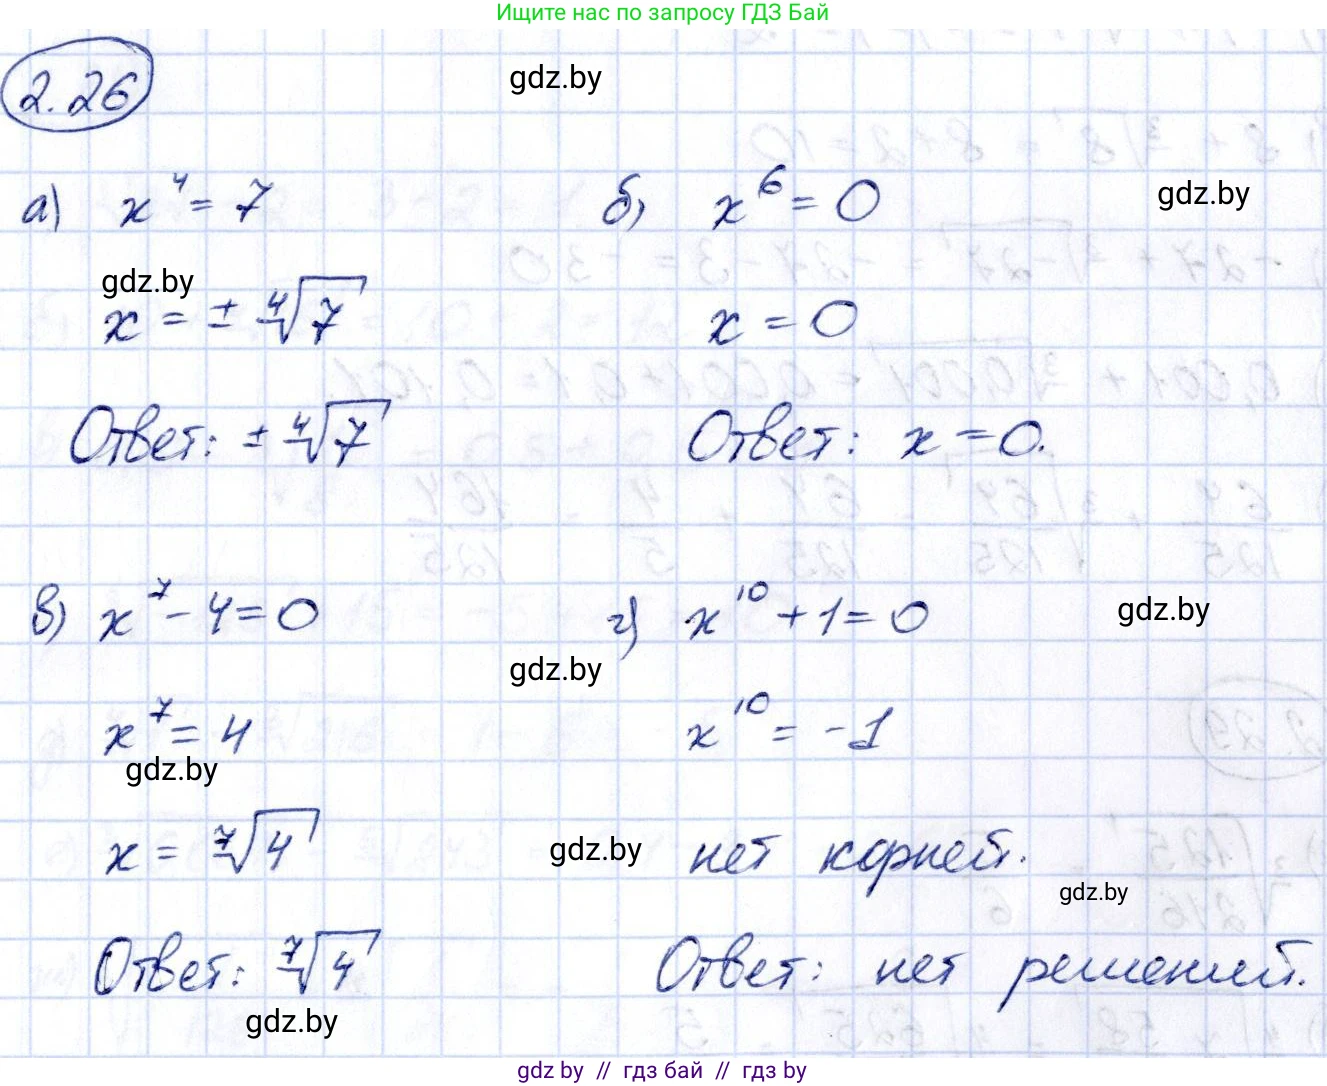 Ищите нас по запросу ГДЗ Бай
2.26
gdz.by
а) x⁴ = 7
б) x⁶ = 0
gdz.by
gdz.by
x = ± ⁴√7
x = 0
Ответ: ± ⁴√7
Ответ: x = 0.
в) x⁷ - 4 = 0
г) x¹⁰ + 1 = 0
gdz.by
gdz.by
x⁷ = 4
x¹⁰ = -1
gdz.by
x = ⁷√4
gdz.by
нет корней.
gdz.by
Ответ: ⁷√4
Ответ: нет решений.
gdz.by
gdz.by // гдз бай // гдз by